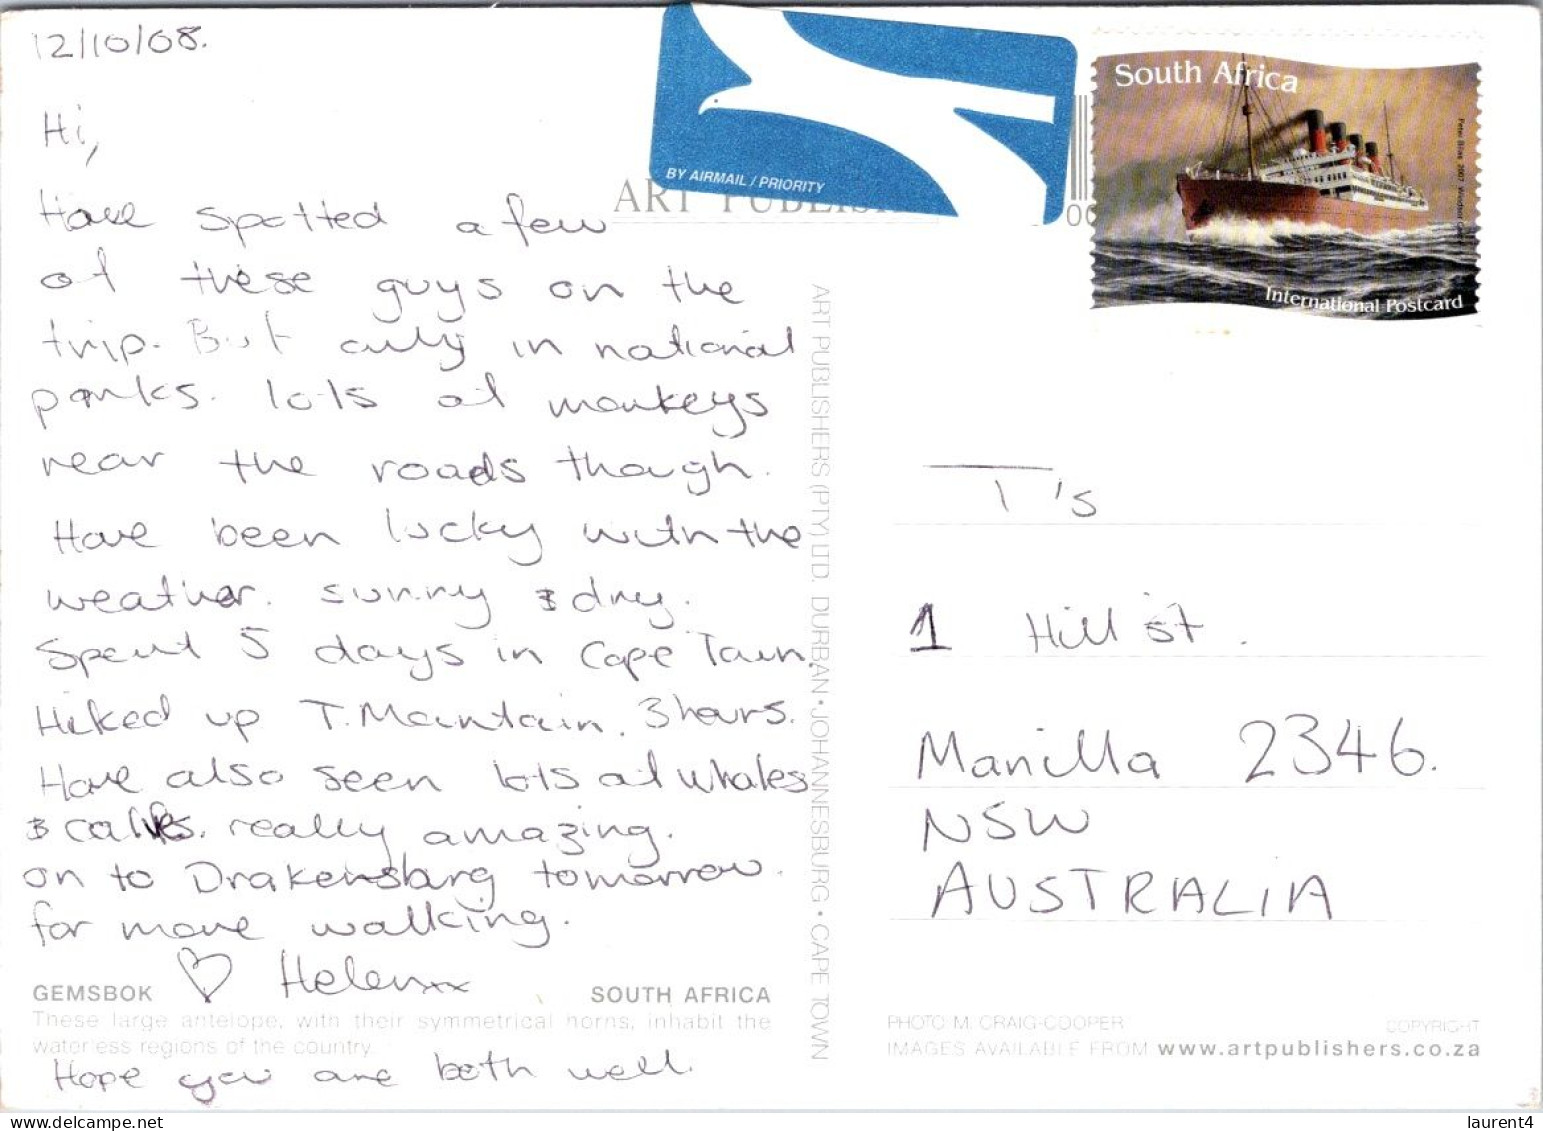 12/10/08.
Hi,
Have spotted a few
of these guys on the
trip. But only in national
parks. lots of monkeys
near the roads though.
Have been lucky with the
weather. sunny & dry.
Spent 5 days in Cape Town.
Hiked up T. Mountain. 3 hours.
Have also seen lots of whales
& calves. really amazing.
on to Drakensburg tomorrow.
for more walking.
♡ Helenxx
GEMSBOK
SOUTH AFRICA
These large antelope, with their symmetrical horns, inhabit the
waterless regions of the country.
Hope you are both well.
BY AIRMAIL / PRIORITY
ART PUBLIS
00
South Africa
Peter Bilas 2007 Windsor Castle
International Postcard
ART PUBLISHERS (PTY) LTD. DURBAN • JOHANNESBURG • CAPE TOWN
T's
1 Hill st.
Manilla 2346.
NSW
AUSTRALIA
PHOTO M. CRAIG-COOPER
COPYRIGHT
IMAGES AVAILABLE FROM www.artpublishers.co.za
laurent4